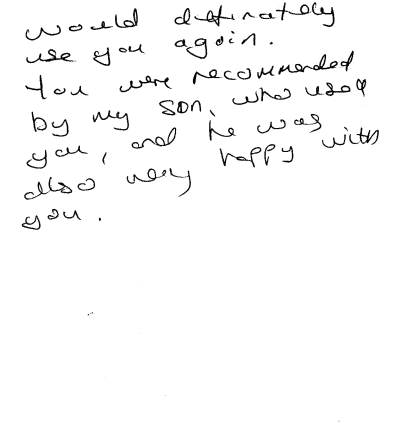 would definately
use you again.
You were recommended
by my son, who used
you, and he was
also very happy with
you.